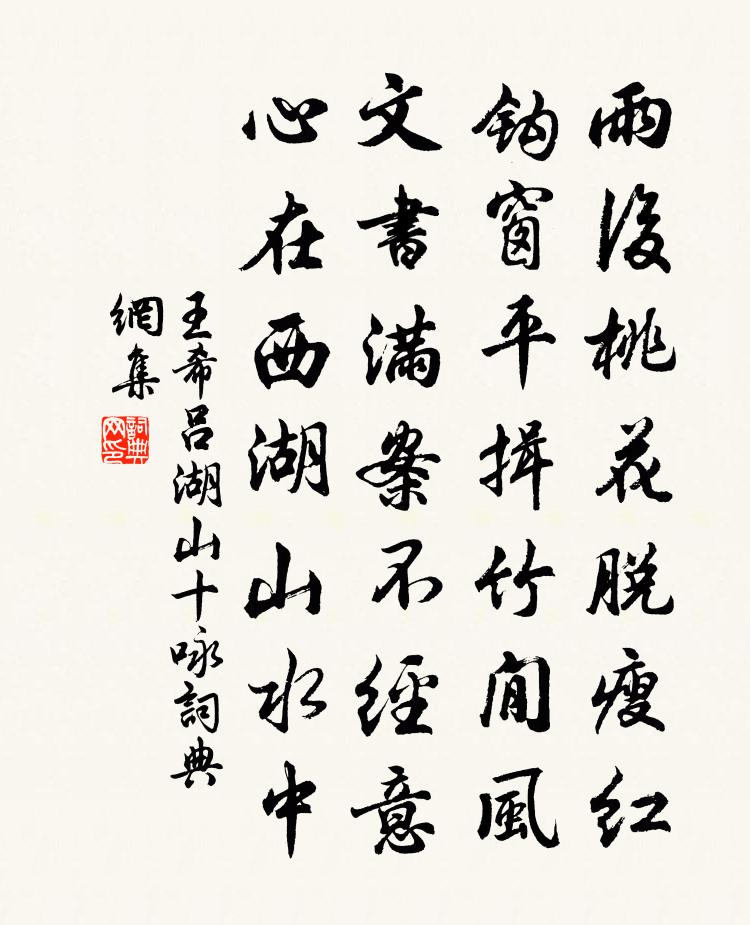 雨後桃花脫瘦紅
鈎窗平揖竹間風
文書滿案不經意
心在西湖山水中
王希呂湖山十咏詞典
網集
詞典
网印